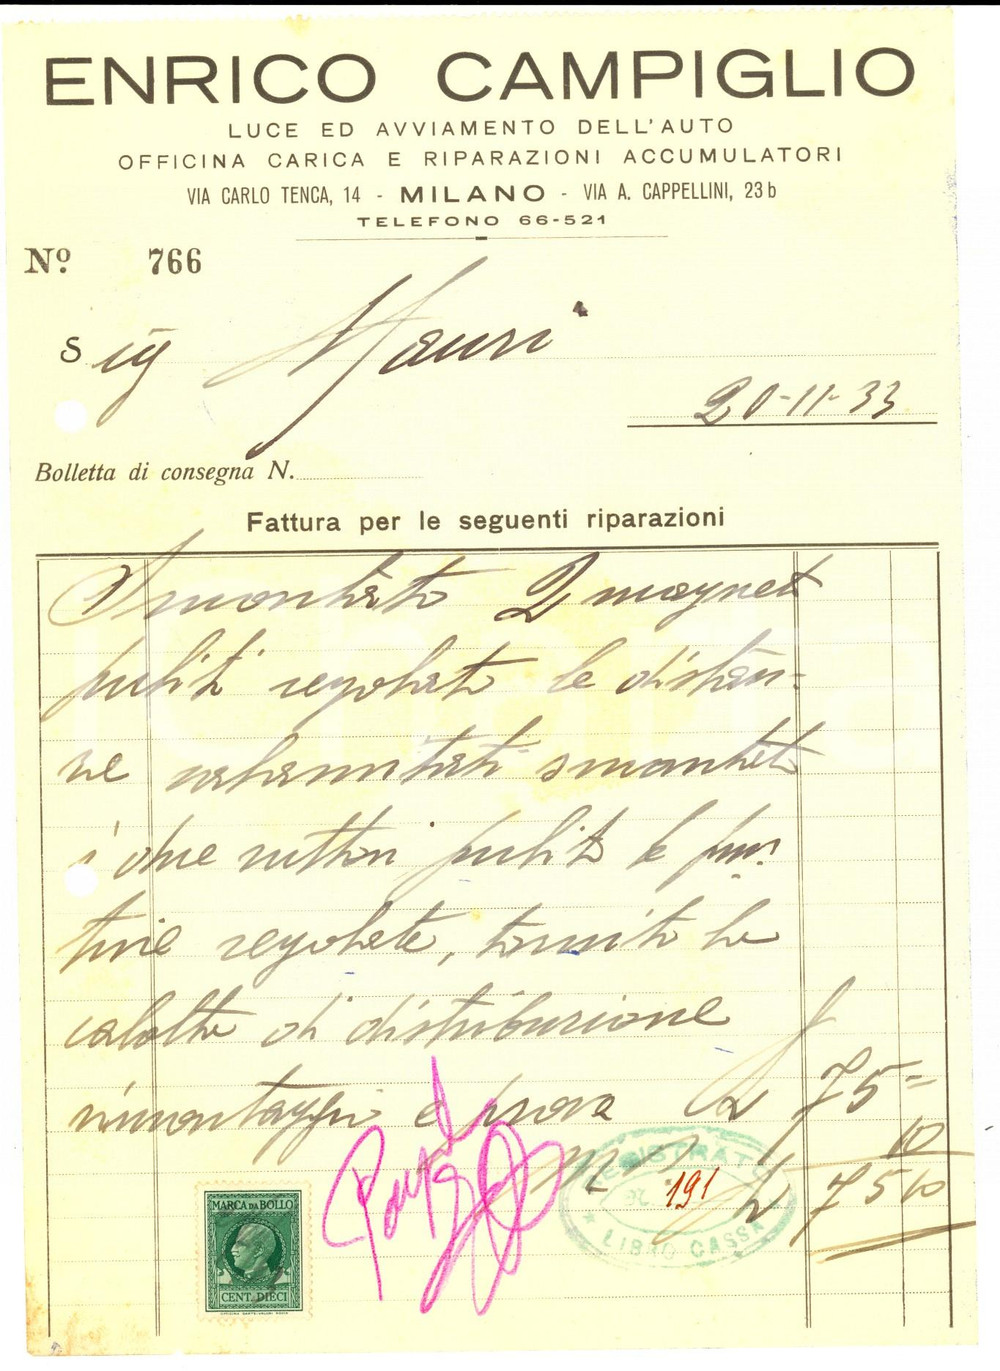 ENRICO CAMPIGLIO
LUCE ED AVVIAMENTO DELL'AUTO
OFFICINA CARICA E RIPARAZIONI ACCUMULATORI
VIA CARLO TENCA, 14 - MILANO - VIA A. CAPPELLINI, 23 b
TELEFONO 66-521
Nº 766
Sig Mauri
20-11-33
Bolletta di consegna N.
Fattura per le seguenti riparazioni
Smontato 2 magneti
puliti regolato le distan-
ze smontato
i due ruttori pulito le pun
tine regolate, tornito le
calotte di distribuzione
rimontaggio e prova L 75=
10
L 75 10
REGISTRATO
Nº 191
LIBRO CASSA
MARCA DA BOLLO
CENT. DIECI